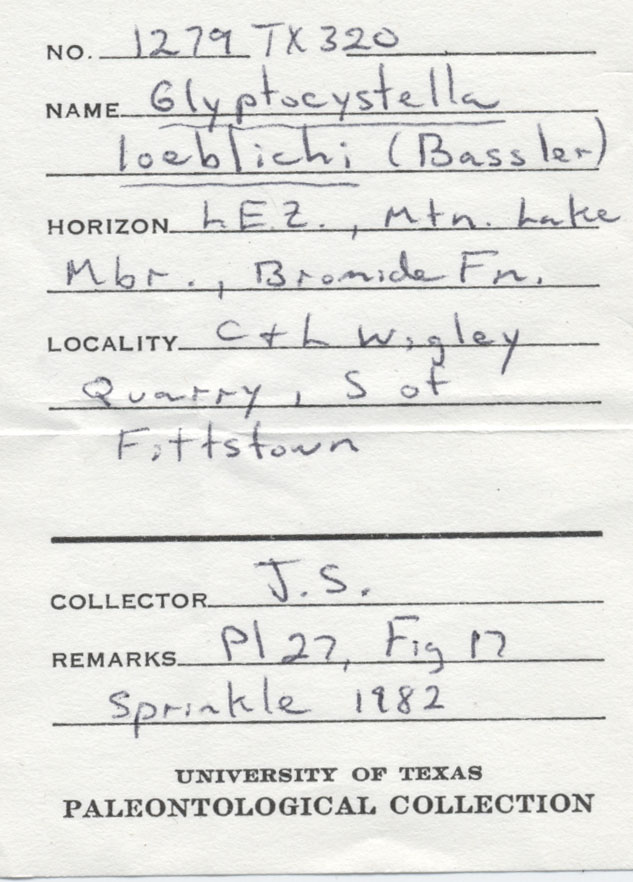 NO. 1279 TX 320
NAME Glyptocystella
loeblichi (Bassler)
HORIZON L.E.Z., Mtn. Lake
Mbr., Bromide Fn.
LOCALITY C + L Wigley
Quarry, S of
Fittstown
COLLECTOR J.S.
REMARKS Pl 27, Fig 17
Sprinkle 1982
UNIVERSITY OF TEXAS
PALEONTOLOGICAL COLLECTION